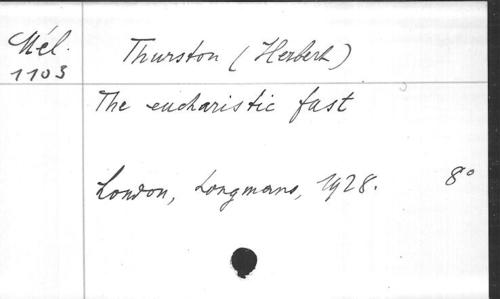 Mél.
1103
Thurston (Herbert)
The eucharistic fast
London, Longmans, 1928. 8°